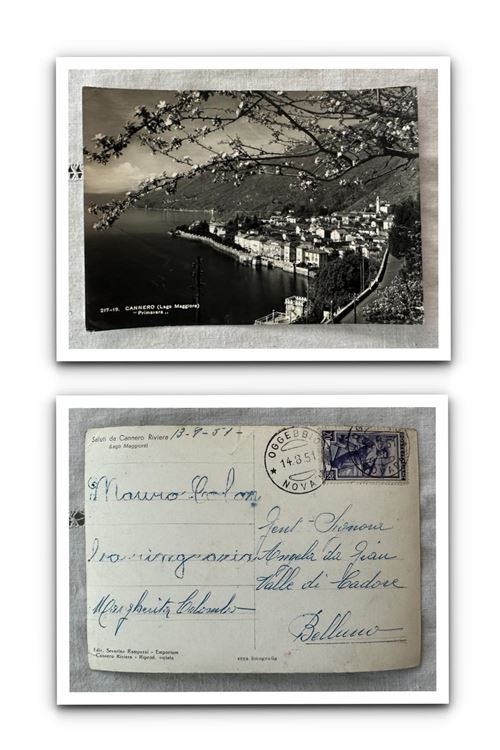 217-19. CANNERO (Lago Maggiore)
"Primavera"
Saluti da Cannero Riviera
(Lago Maggiore)
OGGEBBIO
14.8.51
NOVARA
Mauro Colom
la ringrazia
Margherita Colombo
Gent. Signora
da Pian
Valle di Cadore
Belluno
Ediz. Severino Ramponi - Emporium
Cannero Riviera - Riprod. vietata
vera fotografia